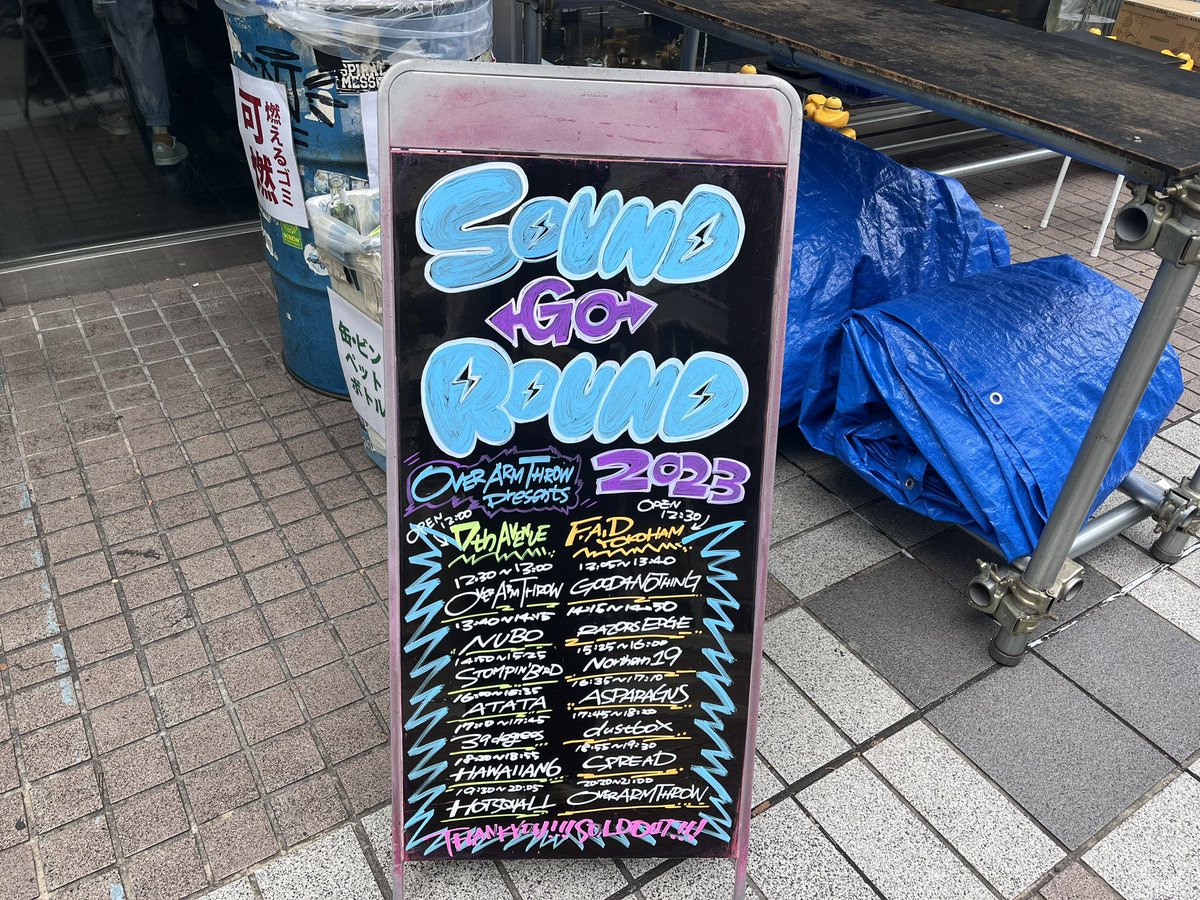 SOUND
GO
ROUND
OVER ARM THROW
presents
2023
OPEN
12:00
7th AVENUE
12:30~13:00
OVER ARM THROW
13:40~14:15
NUBO
14:50~15:25
STOMPIN' BIRD
16:00~16:35
ATATA
17:10~17:45
39degrees
18:20~18:55
HAWAIIAN6
19:30~20:05
HOTSQUALL
OPEN
12:30
F.A.D
YOKOHAMA
13:05~13:40
GOOD4NOTHING
14:15~14:50
RAZORS EDGE
15:25~16:00
Northern19
16:35~17:10
ASPARAGUS
17:45~18:20
dustbox
18:55~19:30
SPREAD
20:20~21:00
OVER ARM THROW
THANK YOU!!! SOLD OUT!!!
燃えるゴミ
可燃
缶・ビン
ペット
ボトル